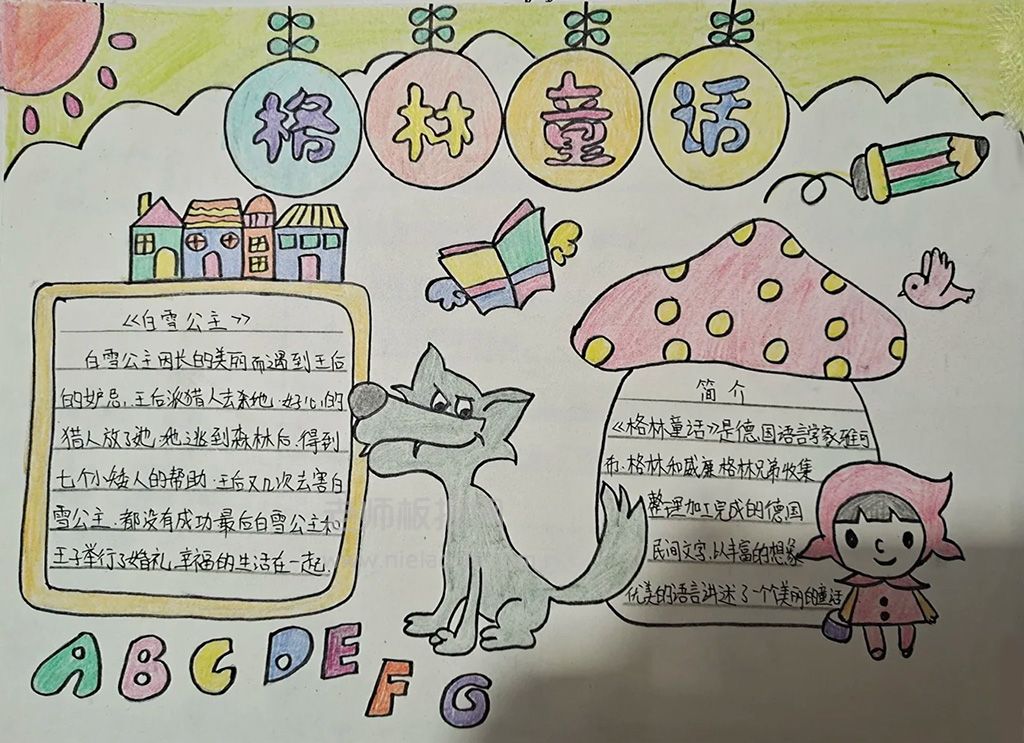 格林童话
《白雪公主》
白雪公主因长的美丽而遇到王后
的妒忌,王后派猎人去杀她.好心的
猎人放了她,她逃到森林后,得到
七个小矮人的帮助.王后又几次去害白
雪公主.都没有成功.最后白雪公主和
王子举行了婚礼.幸福的生活在一起.
简介
《格林童话》是德国语言学家雅可
布·格林和威廉格林兄弟收集
整理加工完成的德国
民间文字,以丰富的想象
优美的语言讲述了一个个美丽的童话
ABCDEFG